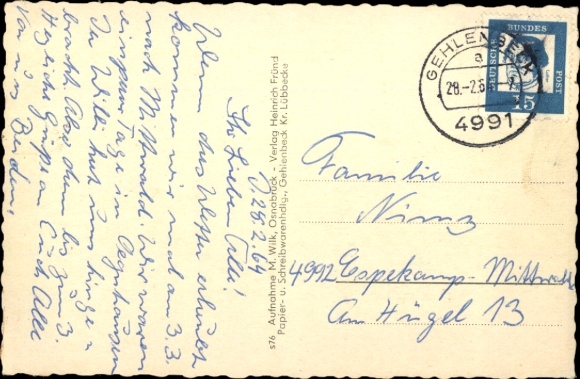 D. 28.2.64
Ihr Lieben Alle!
Wenn das Wetter erlaubt
kommen wir mal am 3.3
nach Mittwald. Wir waren
einige Tage in Oeynhausen
Der Willi hat uns hinge-
bracht. Also dann bis zum 3.
Herzliche Grüsse an Euch Alle
Von uns Beiden!
s76 Aufnahme M. Wilk, Osnabrück - Verlag Heinrich Fründ
Papier- u. Schreibwarenhdlg., Gehlenbeck Kr. Lübbecke
GEHLENBECK
a
28.-2.6
4991
DEUTSCHE BUNDESPOST
15
Familie
Nimz
4992 Espelkamp-Mittwald
Am Hügel 13